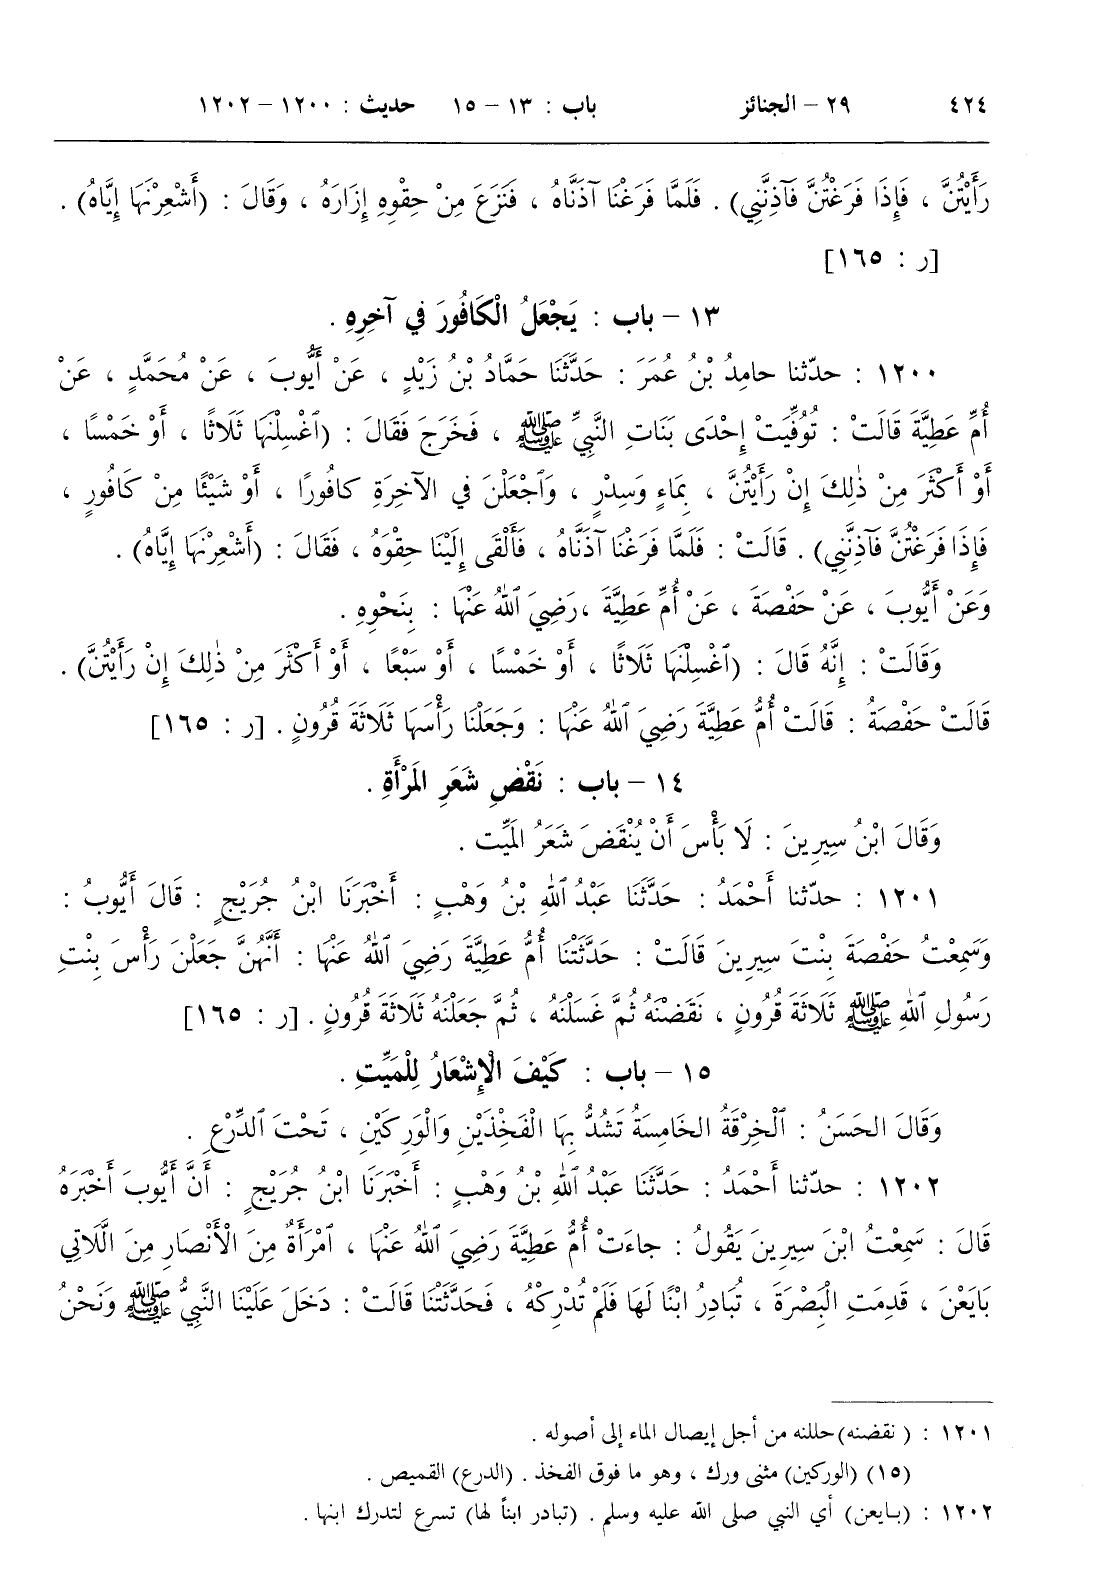 ٤٢٤ ٢٩ – الجنائز باب : ١٣ – ١٥ حديث : ١٢٠٠ – ١٢٠٢
رَأَيْتُنَّ ، فَإِذَا فَرَغْتُنَّ فَآذِنَّنِي) . فَلَمَّا فَرَغْنَا آذَنَّاهُ ، فَنَزَعَ مِنْ حِقْوِهِ إِزَارَهُ ، وَقَالَ : (أَشْعِرْنَهَا إِيَّاهُ) .
[ر : ١٦٥]
١٣ – باب : يَجْعَلُ الْكَافُورَ في آخِرِهِ .
١٢٠٠ : حدّثنا حامِدُ بْنُ عُمَرَ : حَدَّثَنَا حَمَّادُ بْنُ زَيْدٍ ، عَنْ أَيُّوبَ ، عَنْ مُحَمَّدٍ ، عَنْ
أُمِّ عَطِيَّةَ قَالَتْ : تُوُفِّيَتْ إِحْدَى بَنَاتِ النَّبِيِّ ﷺ ، فَخَرَجَ فَقَالَ : (ٱغْسِلْنَهَا ثَلَاثًا ، أَوْ خَمْسًا ،
أَوْ أَكْثَرَ مِنْ ذٰلِكَ إِنْ رَأَيْتُنَّ ، بِمَاءٍ وَسِدْرٍ ، وَٱجْعَلْنَ في الآخِرَةِ كافُورًا ، أَوْ شَيْئًا مِنْ كَافُورٍ ،
فَإِذَا فَرَغْتُنَّ فَآذِنَّنِي) . قَالَتْ : فَلَمَّا فَرَغْنَا آذَنَّاهُ ، فَأَلْقَى إِلَيْنَا حِقْوَهُ ، فَقَالَ : (أَشْعِرْنَهَا إِيَّاهُ) .
وَعَنْ أَيُّوبَ ، عَنْ حَفْصَةَ ، عَنْ أُمِّ عَطِيَّةَ ،رَضِيَ ٱللهُ عَنْهَا : بِنَحْوِهِ .
وَقَالَتْ : إِنَّهُ قَالَ : (ٱغْسِلْنَهَا ثَلَاثًا ، أَوْ خَمْسًا ، أَوْ سَبْعًا ، أَوْ أَكْثَرَ مِنْ ذٰلِكَ إِنْ رَأَيْتُنَّ) .
قَالَتْ حَفْصَةُ : قَالَتْ أُمُّ عَطِيَّةَ رَضِيَ ٱللهُ عَنْهَا : وَجَعَلْنَا رَأْسَهَا ثَلَاثَةَ قُرُونٍ . [ر : ١٦٥]
١٤ – باب : نَقْضِ شَعَرِ المَرْأَةِ .
وَقَالَ ابْنُ سِيرِينَ : لَا بَأْسَ أَنْ يُنْقَضَ شَعَرُ المَيِّت .
١٢٠١ : حدّثنا أَحْمَدُ : حَدَّثَنَا عَبْدُ ٱللهِ بْنُ وَهْبٍ : أَخْبَرَنَا ابْنُ جُرَيْجٍ : قَالَ أَيُّوبُ :
وَسَمِعْتُ حَفْصَةَ بِنْتَ سِيرِينَ قَالَتْ : حَدَّثَتْنَا أُمُّ عَطِيَّةَ رَضِيَ ٱللهُ عَنْهَا : أَنَّهُنَّ جَعَلْنَ رَأْسَ بِنْتِ
رَسُولِ ٱللهِ ﷺ ثَلَاثَةَ قُرُونٍ ، نَقَضْنَهُ ثُمَّ غَسَلْنَهُ ، ثُمَّ جَعَلْنَهُ ثَلَاثَةَ قُرُونٍ . [ر : ١٦٥]
١٥ – باب : كَيْفَ الْإِشْعَارُ لِلْمَيِّتِ .
وَقَالَ الحَسَنُ : ٱلْخِرْقَةُ الخَامِسَةُ تَشُدُّ بِهَا الْفَخْذَيْنِ وَالْوَرِكَيْنِ ، تَحْتَ ٱلدِّرْعِ .
١٢٠٢ : حدّثنا أَحْمَدُ : حَدَّثَنَا عَبْدُ ٱللهِ بْنُ وَهْبٍ : أَخْبَرَنَا ابْنُ جُرَيْجٍ : أَنَّ أَيُّوبَ أَخْبَرَهُ
قَالَ : سَمِعْتُ ابْنَ سِيرِينَ يَقُولُ : جاءَتْ أُمُّ عَطِيَّةَ رَضِيَ ٱللهُ عَنْهَا ، ٱمْرَأَةٌ مِنَ الْأَنْصَارِ مِنَ الَّلَاتِي
بَايَعْنَ ، قَدِمَتِ الْبَصْرَةَ ، تُبَادِرُ ابْنًا لَهَا فَلَمْ تُدْرِكْهُ ، فَحَدَّثَتْنَا قَالَتْ : دَخَلَ عَلَيْنَا النَّبِيُّ ﷺ وَنَحْنُ
١٢٠١ : ( نقضنه)حللنه من أجل إيصال الماء إلى أصوله .
(١٥) (الوركين) مثنى ورك ، وهو ما فوق الفخذ . (الدرع) القميص .
١٢٠٢ : (بايعن) أي النبي صلى الله عليه وسلم . (تبادر ابناً لها) تسرع لتدرك ابنها .